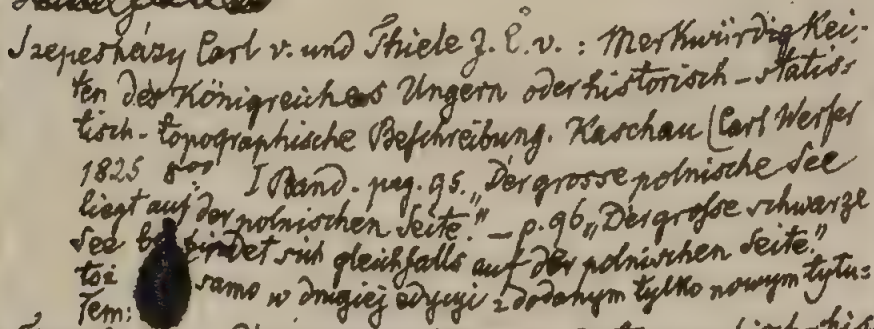 Szepesházy Carl v. und Thiele J. C. v. : Merkwürdigkei-
ten des Königreiches Ungern oder historisch-statis-
tisch-topographische Beschreibung. Kaschau (Carl Werfer
1825 8vo I Band. pag. 95. „Der grosse polnische See
liegt auf der polnischen Seite." – p. 96 „Der große schwarze
See befindet sich gleichfalls auf der polnischen Seite."
toż samo w drugiej edycyi z dodanym tylko nowym tytu-
łem: